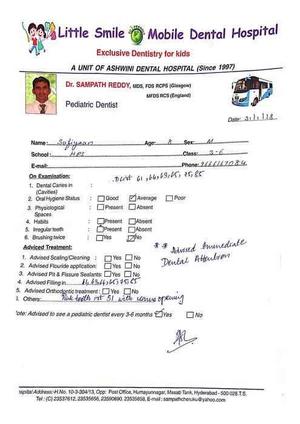 Little Smile Mobile Dental Hospital
Exclusive Dentistry for kids
A UNIT OF ASHWINI DENTAL HOSPITAL (Since 1997)
Dr. SAMPATH REDDY, MDS, FDS RCPS (Glasgow)
MFDS RCS (England)
Pediatric Dentist
Date: 31/1/18
Name: Sufiyaan Age: 8 Sex: M
School: HPS Class: 3-E
E-mail: Phone:
On Examination:
1. Dental Caries in (Cavities)
2. Oral Hygiene Status : Good Average Poor
3. Physiological Spaces : Present Absent
4. Habits : Present Absent
5. Irregular teeth : Present Absent
6. Brushing twice : Yes No
** Advised Immediate Dental Attention
Adviced Treatment:
1. Advised Scaling/Cleaning : Yes No
2. Advised Flouride application: Yes No
3. Advised Pit & Fissure Sealants: Yes No
4. Advised Filling in
5. Advised Orthodontic treatment : Yes No
Others:
ote: Advised to see a pediatric dentist every 3-6 months Yes No
ospital Address: H.No. 10-3-304/13, Opp: Post Office, Humayunnagar, Masab Tank, Hyderabad - 500 028 T.S.
Tel: (C) 23537612, 23535656, 23590690, 23535658, E-mail: sampathcheruku@yahoo.com